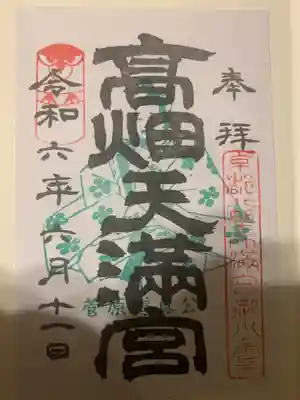 奉拝
高畑天満宮
菅原道真公
令和六年六月十一日